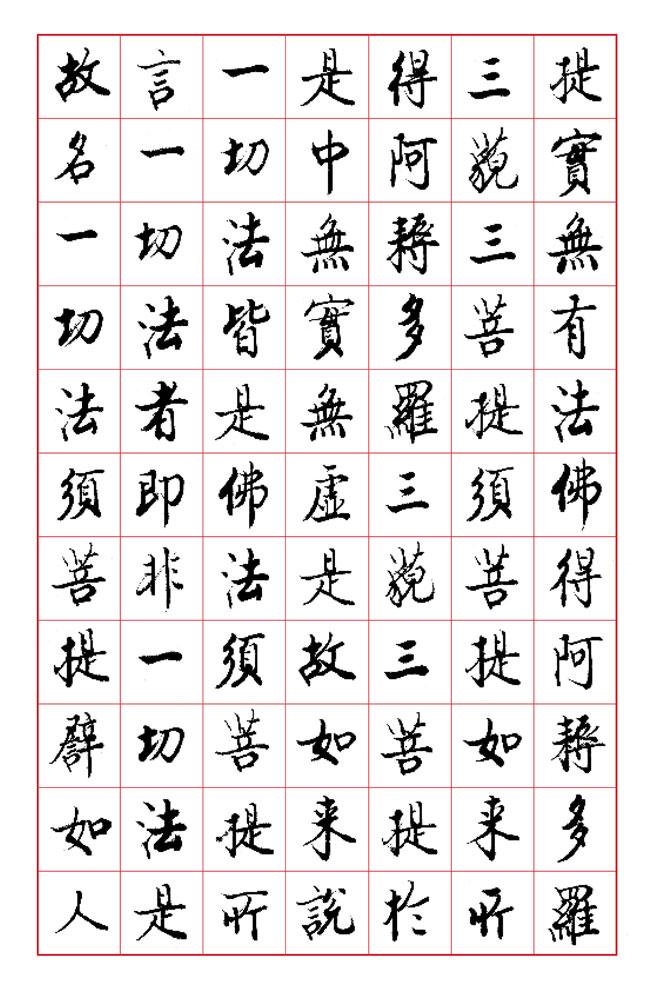 提實無有法佛得阿耨多羅
三藐三菩提須菩提如来所
得阿耨多羅三藐三菩提於
是中無實無虛是故如来說
一切法皆是佛法須菩提所
言一切法者即非一切法是
故名一切法須菩提譬如人